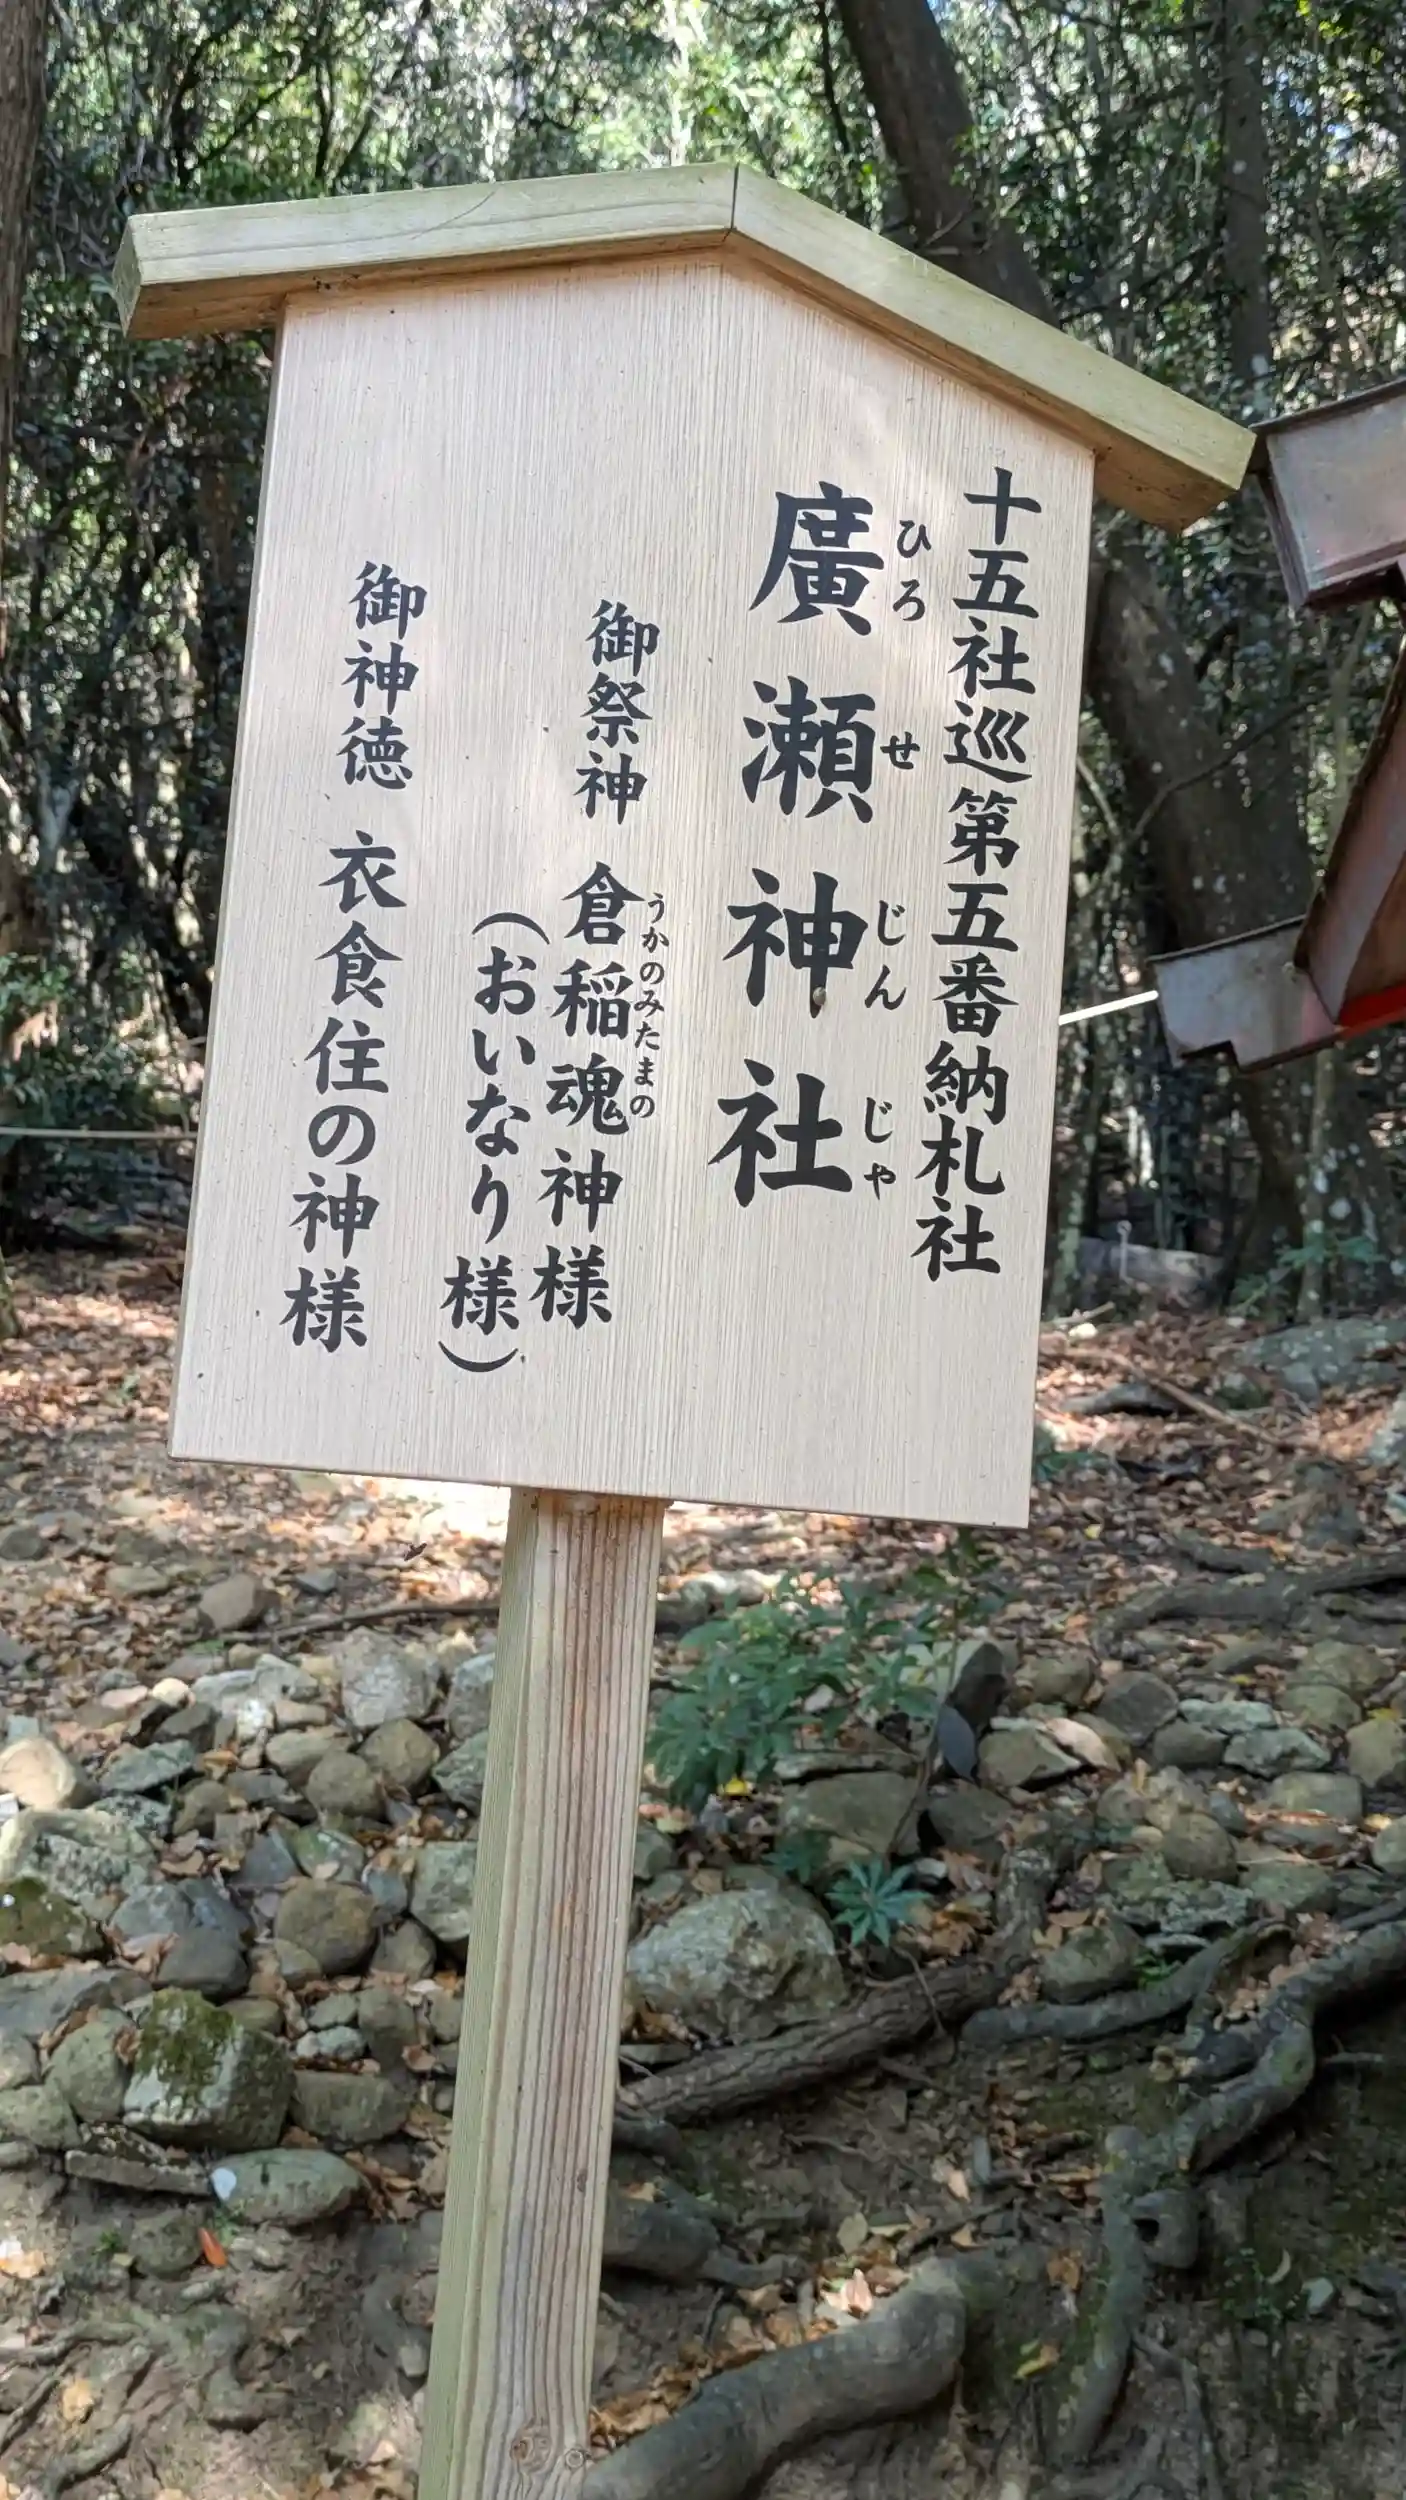 十五社巡第五番納札社
廣瀬神社
ひろせじんじゃ
御祭神 倉稲魂神様
うかのみたまの
（おいなり様）
御神徳 衣食住の神様